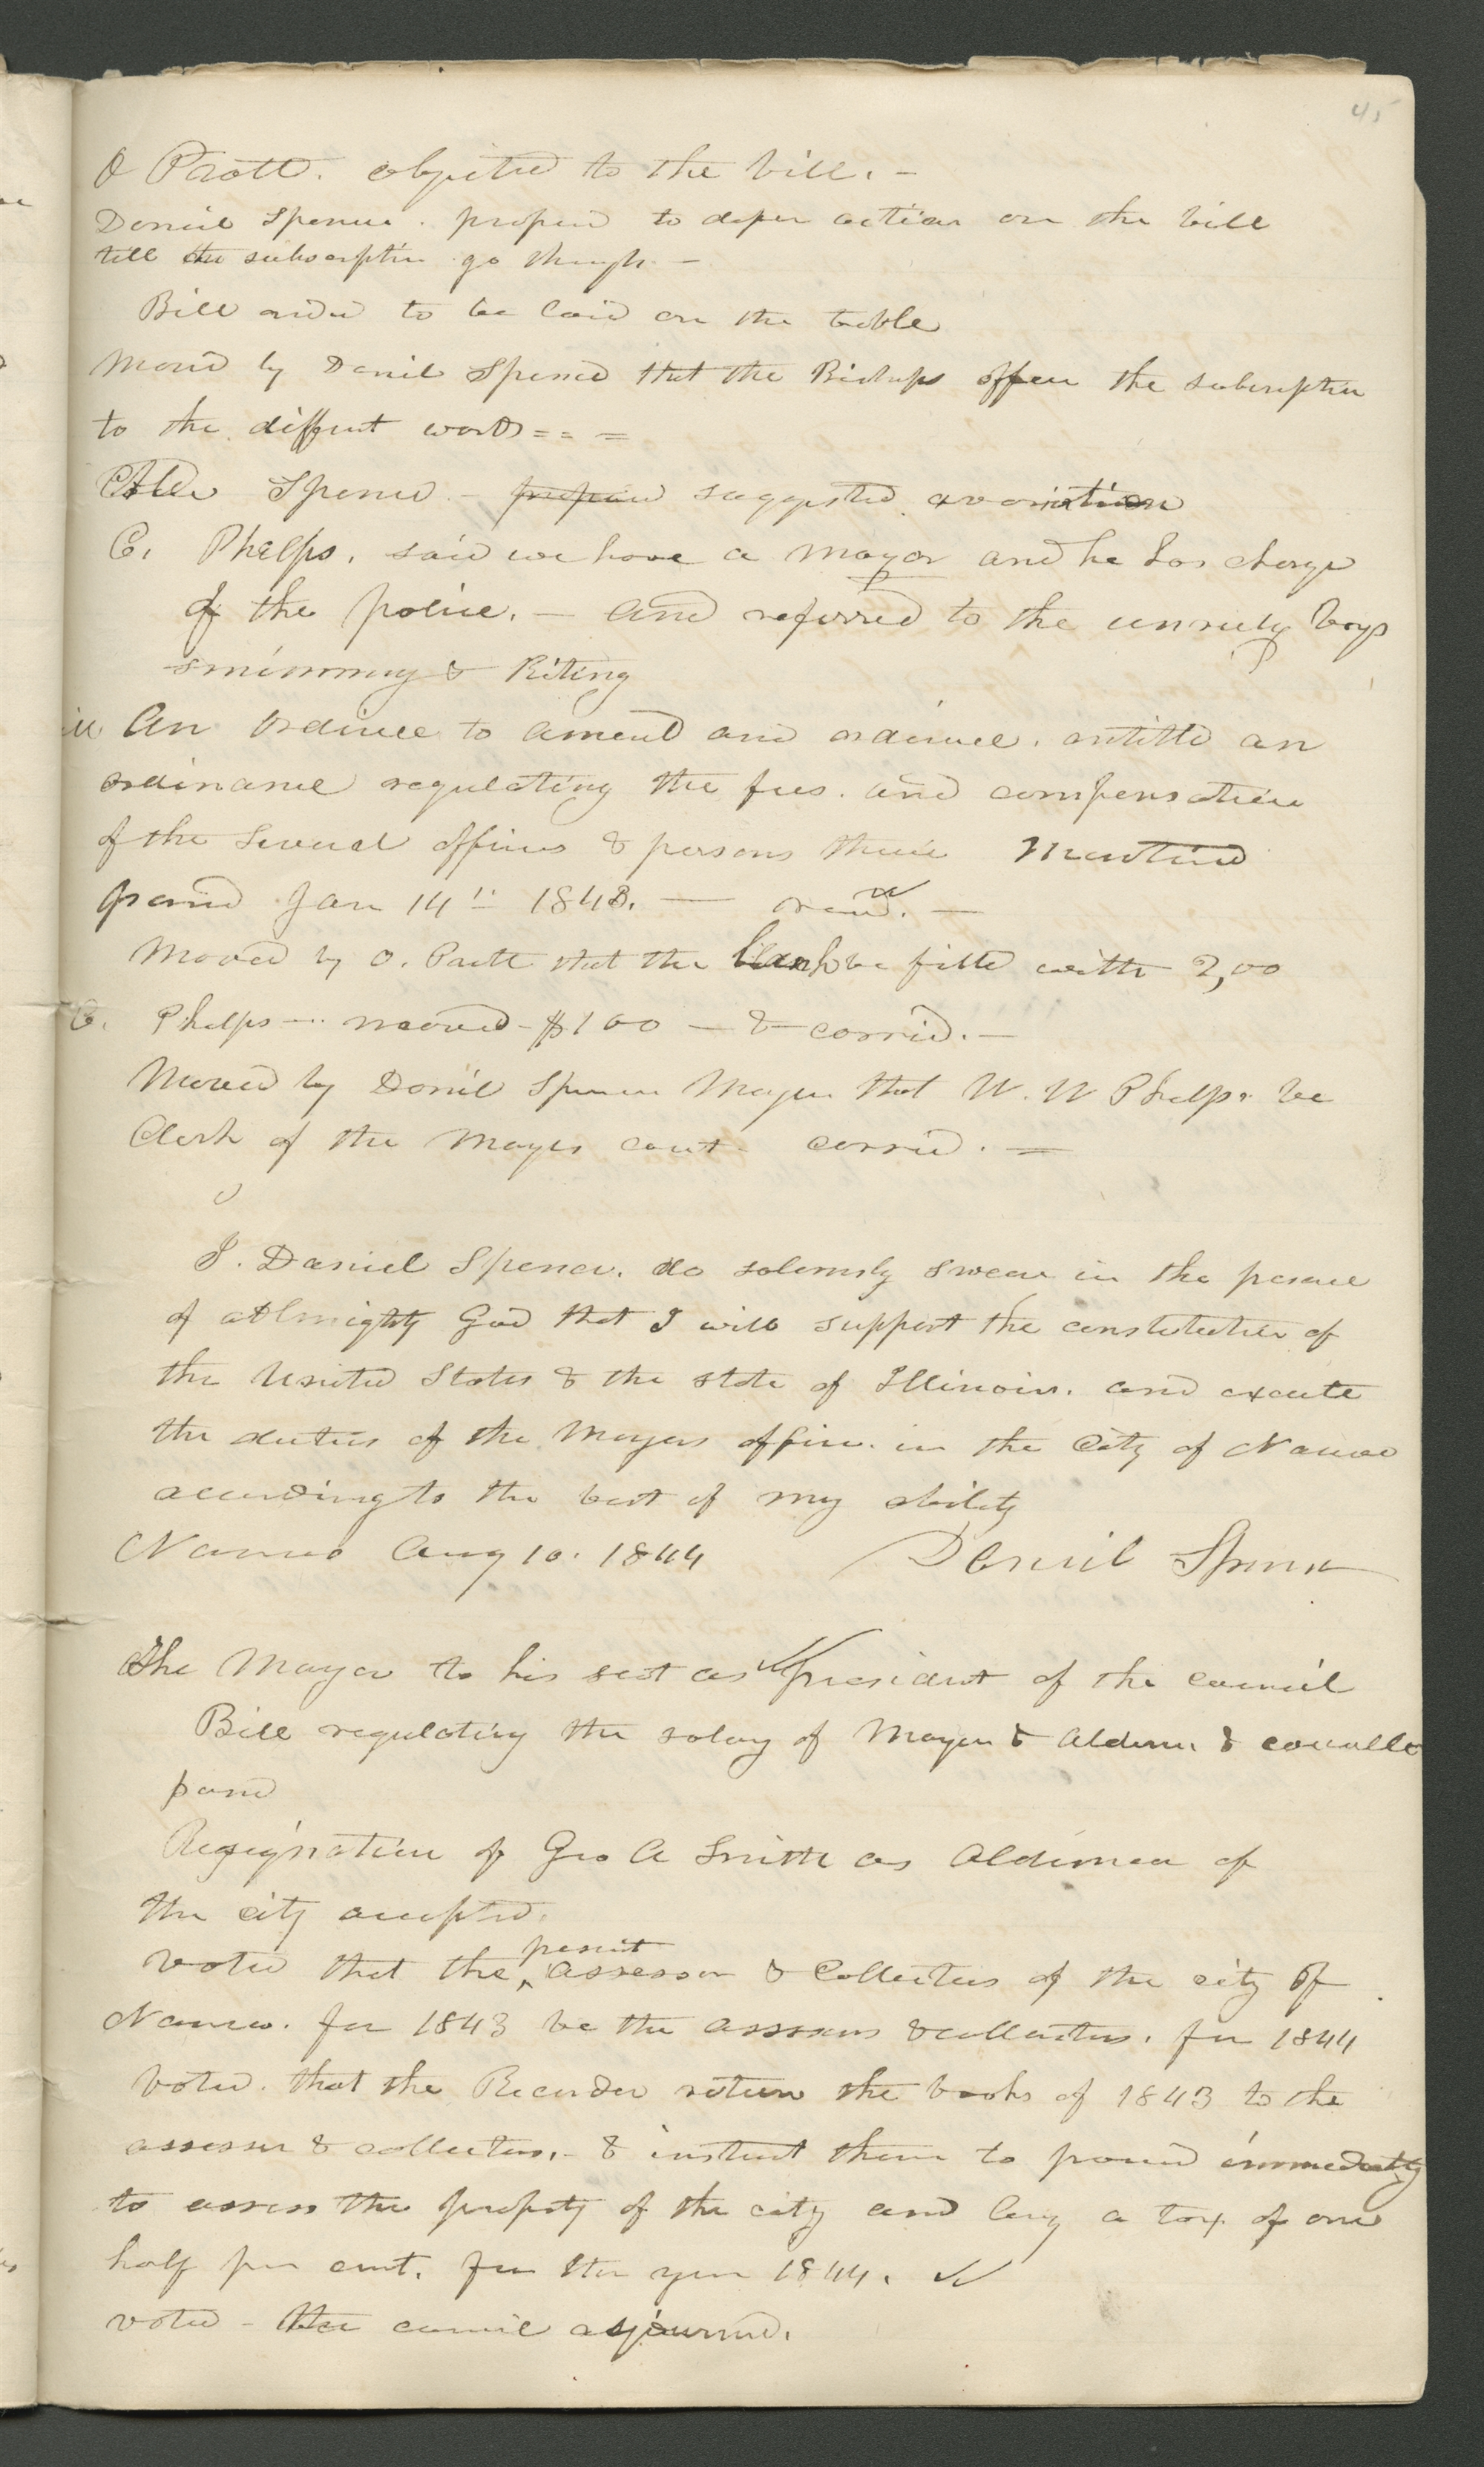 45
O Pratt. objected to the bill. -
Daniel Spencer. proposed to defer action on the bill
till the subscription go through -
Bill ordered to be laid on the table
Moved by Daniel Spencer that the Bishops offer the subscription
to the different wards = = =
Alder Spencer - proposed suggested a variation
C. Phelps. said we have a mayor and he has charge
of the police. - and referred to the unruly boys
swimming & Riting
An Ordinee to amend and ordinance. entitled an
ordinance regulating the fees. and compensation
of the several officers & persons therein Mentioned
passed Jan 14" 1843. — read. —
Moved by O. Pratt that the blank be filled with 2,00
C. Phelps — moved - $1 00 — & carried. —
Moved by Daniel Spencer Mayor that W. W Phelps be
Clerk of the Mayors court carried. =
I. Daniel Spencer. do solemnly swear in the presence
of Almighty God that I will support the constitution of
the United States & the state of Illinois. and execute
the duties of the Mayors office. in the City of Nauvoo
according to the best of my ability
Nauvoo Aug 10. 1844 Daniel Spencer
The Mayor to his seat as president of the council
Bill regulating the salary of Mayor & Aldermen & councillo
passed
Resignation of Geo A Smith as Alderman of
the city accepted.
voted that the ^ present assessor & Collectors of the city of
Nauvoo. for 1843 be the assessors & collectors. for 1844
Voted. that the Recorder return the books of 1843 to the
assessor & collectors. - & instruct them to proceed immediately
to assess the property of the city and levy a tax of one
half per cent. for the year 1844.
voted - the council adjourned.